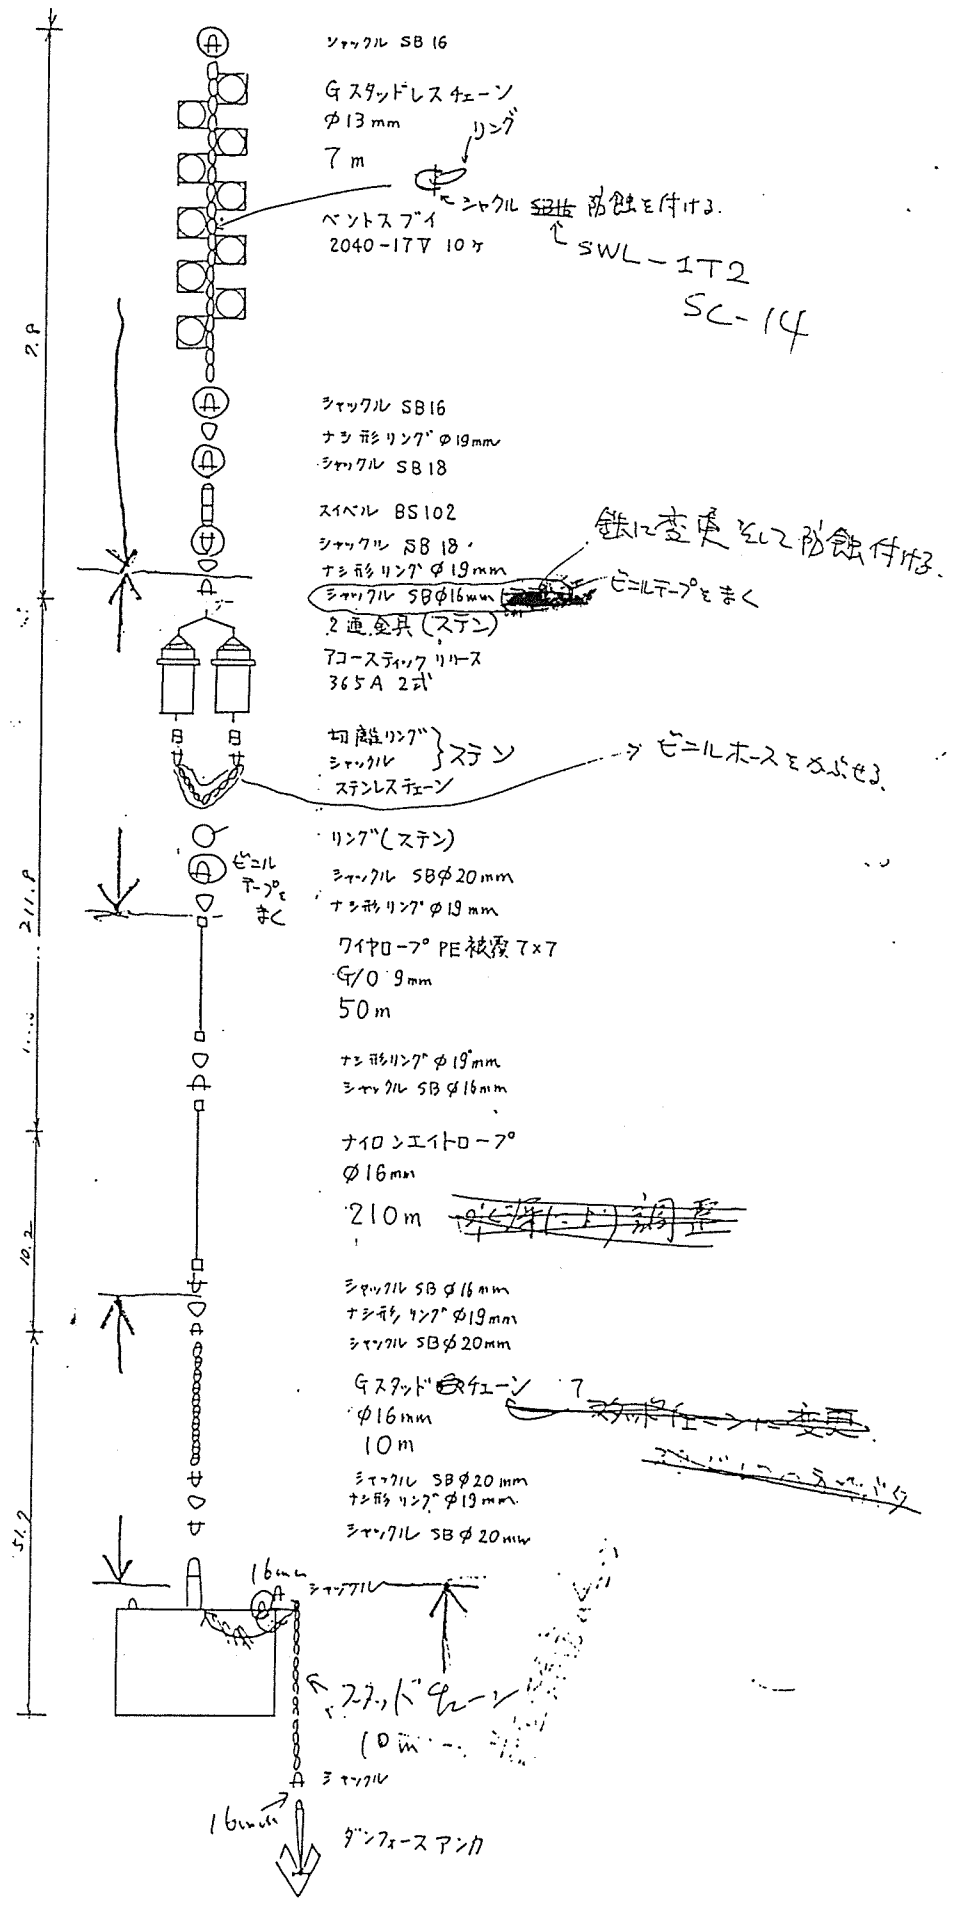 シャックル SB16
Gスタッドレスチェーン
φ13mm
7m
リング
シャクル SB16 防蝕を付ける.
SWL-1T2
SC-14
ベントスブイ
2040-17V 10ケ
7.8
シャックル SB16
ナシ形リング φ19mm
シャックル SB18
スイベル BS102
シャックル SB18
ナシ形リング φ19mm
シャックル SBφ16mm
鉄に変更 そして防蝕付ける.
ビニルテープをまく
2連金具(ステン)
アコースティックリリース
365A 2式
切離リング
シャックル
ステン
ステンレスチェーン
ビニルホースをかぶせる.
リング(ステン)
シャックル SBφ20mm
ナシ形リング φ19mm
ビニル
テープを
まく
211.8
ワイヤロープ PE被覆 7×7
G/O 9mm
50m
ナシ形リング φ19mm
シャックル SBφ16mm
ナイロンエイトロープ
φ16mm
210m
調整
10.2
シャックル SBφ16mm
ナシ形リング φ19mm
シャックル SBφ20mm
Gスタッド チェーン
φ16mm
10m
変更
シャックル SBφ20mm
ナシ形リング φ19mm
シャックル SBφ20mm
51.2
16mm
シャックル
スタッドチェーン
10m
シャックル
16mm
ダンフォースアンカ